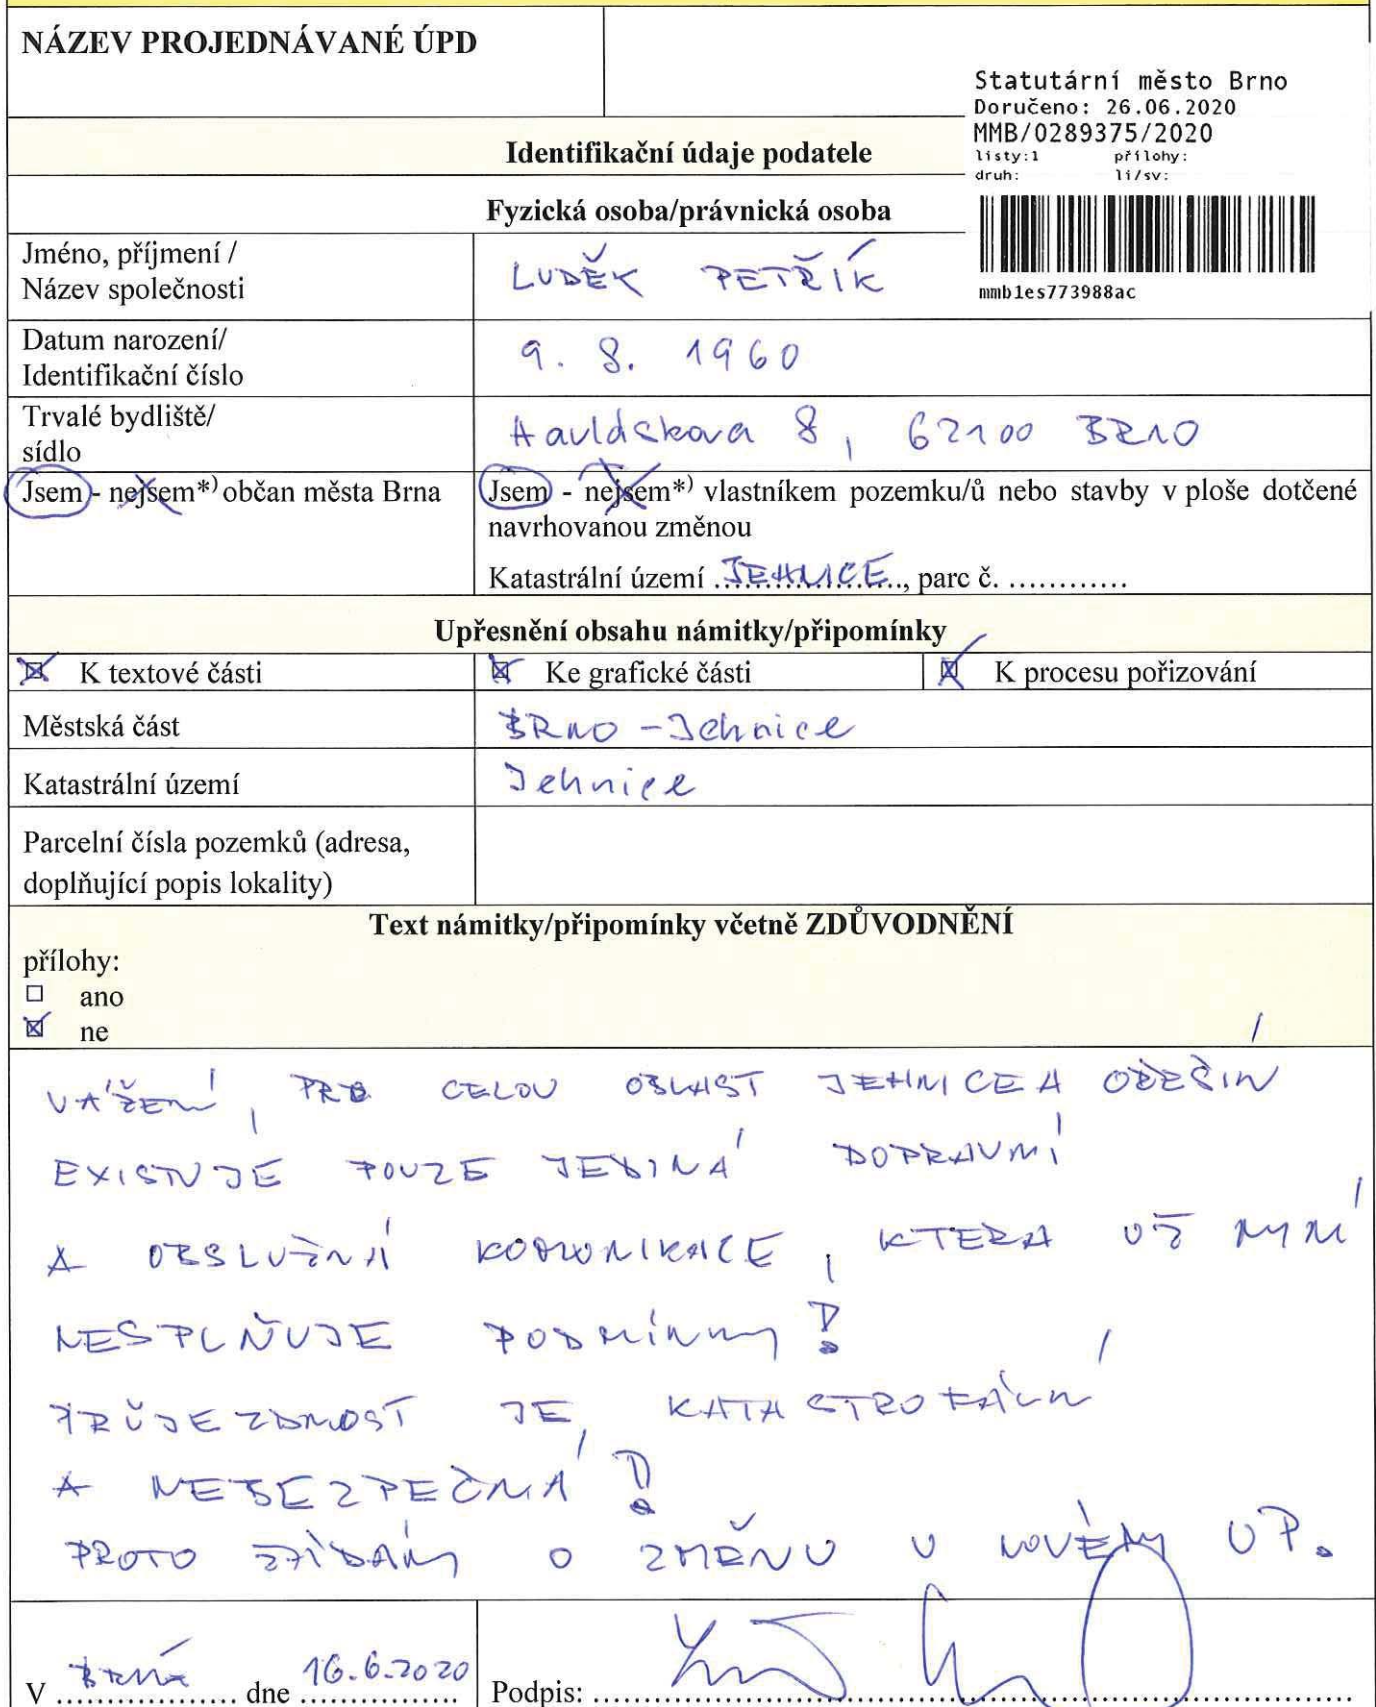 NÁZEV PROJEDNÁVANÉ ÚPD
Statutární město Brno
Doručeno: 26.06.2020
MMB/0289375/2020
listy:1 přílohy:
druh: li/sv:
mmb1es773988ac
Identifikační údaje podatele
Fyzická osoba/právnická osoba
Jméno, příjmení /
Název společnosti
LUDĚK PETŘÍK
Datum narození/
Identifikační číslo
9. 8. 1960
Trvalé bydliště/
sídlo
8, 62100 BRNO
Jsem - nejsem*) občan města Brna
Jsem - nejsem*) vlastníkem pozemku/ů nebo stavby v ploše dotčené
navrhovanou změnou
Katastrální území JEHNICE, parc č. ............
Upřesnění obsahu námitky/připomínky
K textové části
Ke grafické části
K procesu pořizování
Městská část
BRNO - Jehnice
Katastrální území
Jehnice
Parcelní čísla pozemků (adresa,
doplňující popis lokality)
Text námitky/připomínky včetně ZDŮVODNĚNÍ
přílohy:
ano
ne
VÁŽENÍ, PRO CELOU OBLAST JEHNICE A OŘEŠÍN
EXISTUJE POUZE JEDINÁ DOPRAVNÍ
A OBSLUŽNÁ KOMUNIKACE, KTERA UŽ NYNÍ
NESPLŇUJE PODMÍNKY!
PRŮJEZDNOST JE KATASTROFÁLNÍ
A NEBEZPEČNÁ!
PROTO ŽÁDÁM O ZMĚNU V NOVÉM UP.
V Brně dne 16.6.2020
Podpis: